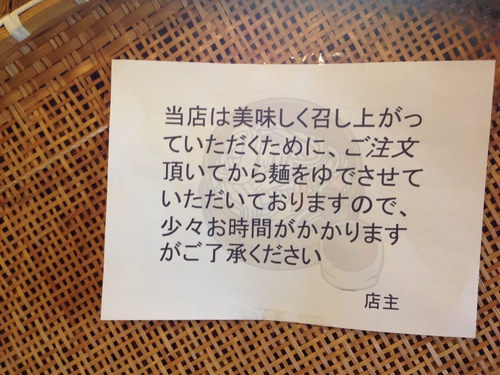 当店は美味しく召し上がっ
ていただくために、ご注文
頂いてから麺をゆでさせて
いただいておりますので、
少々お時間がかかります
がご了承ください
店主